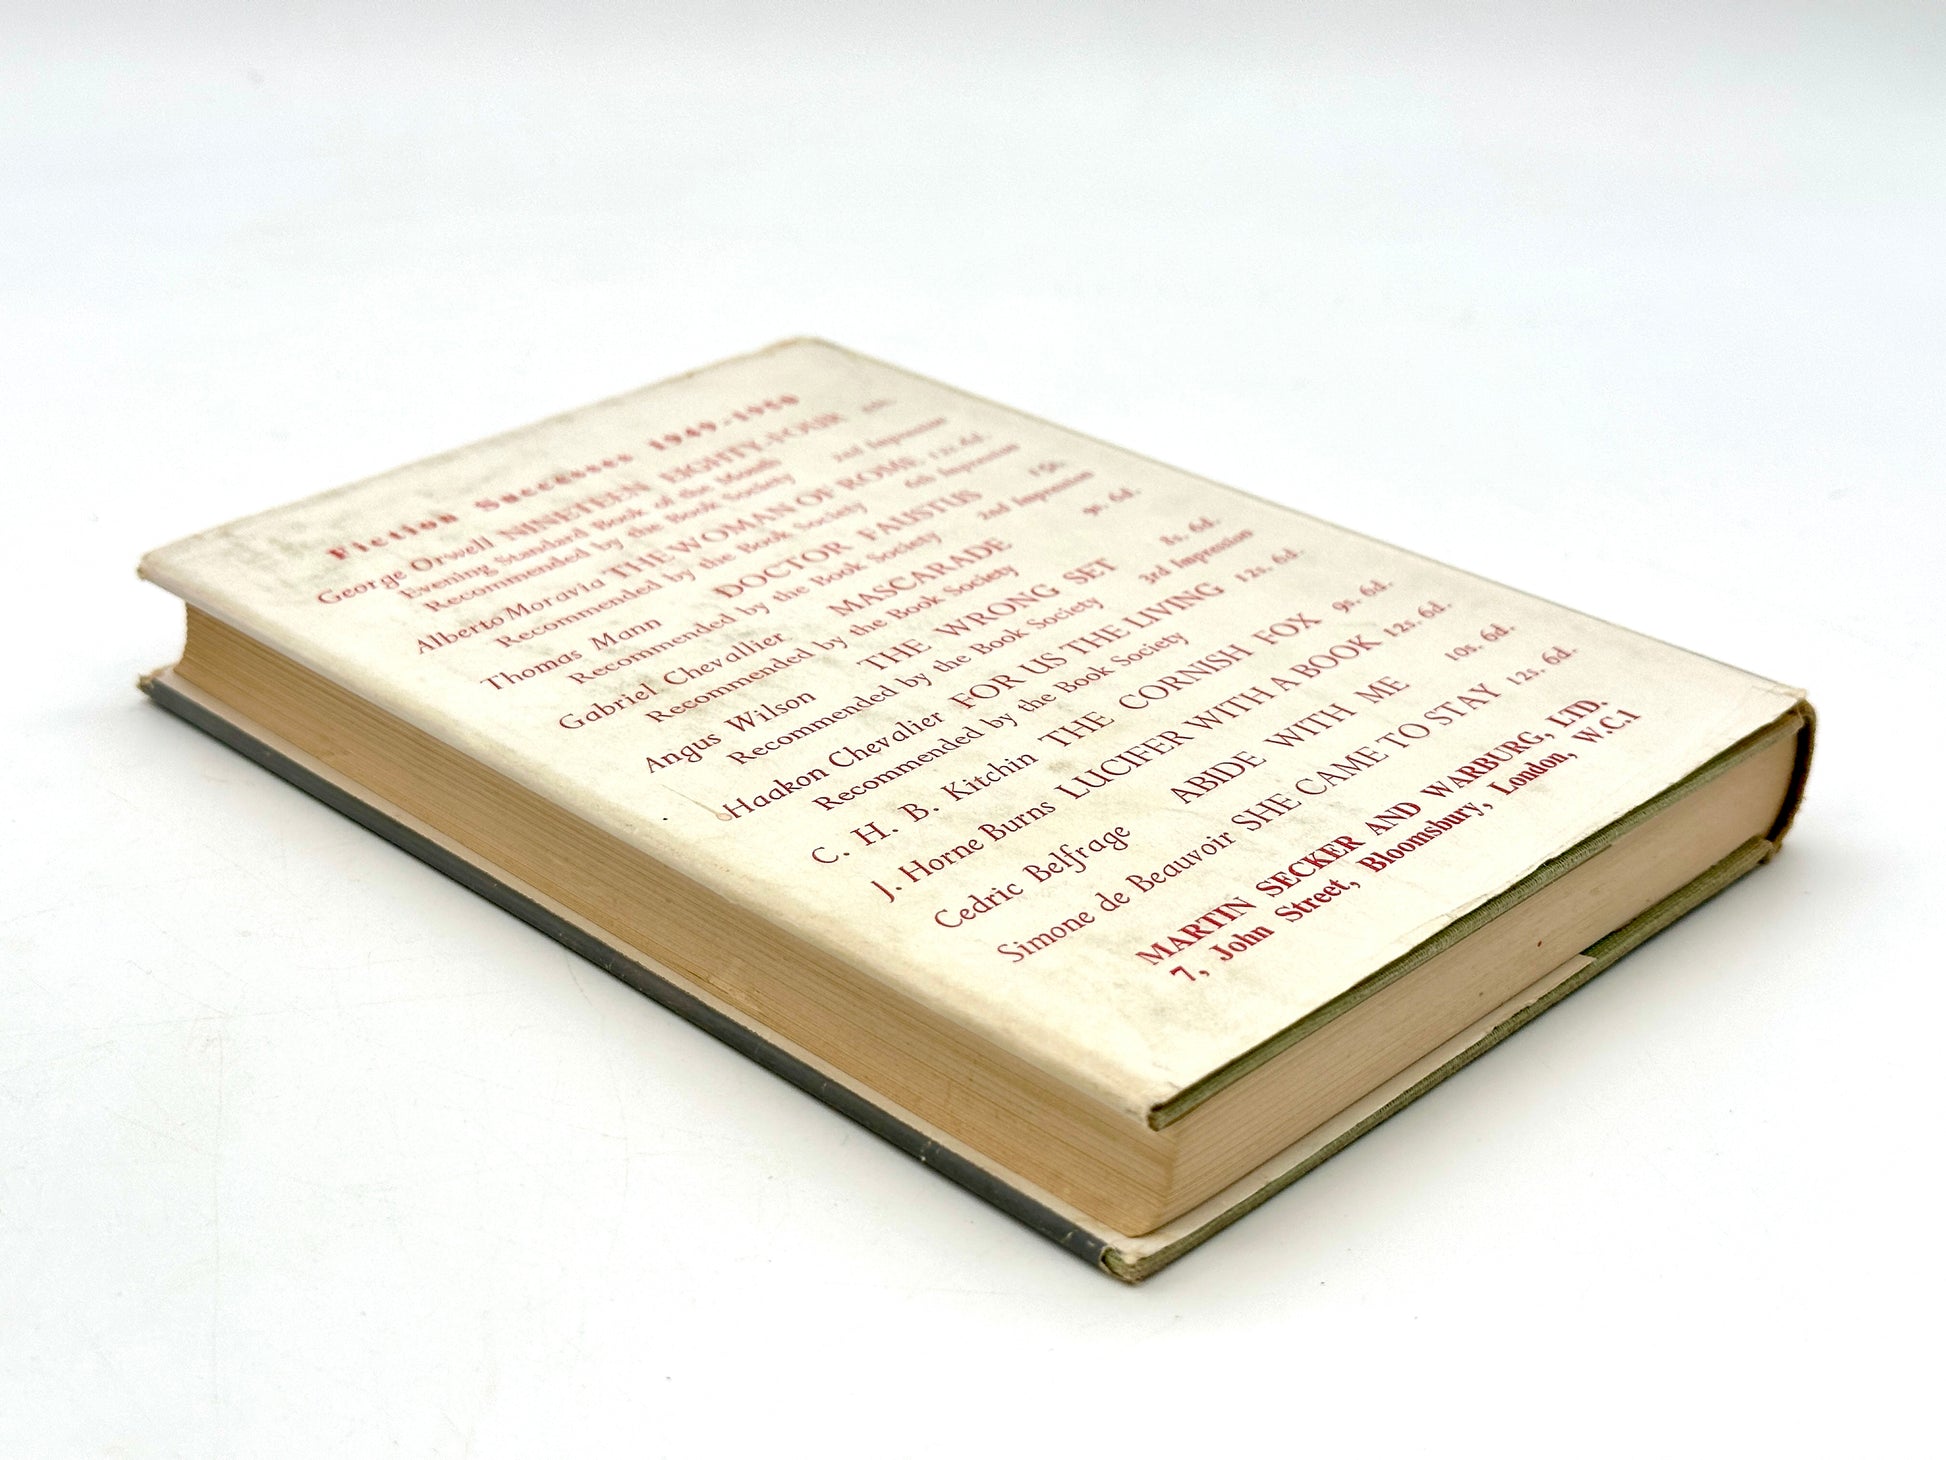 Fiction Successes 1949-1950
George Orwell NINETEEN EIGHTY-FOUR
Evening Standard Book of the Month
Recommended by the Book Society 2nd Impression
Alberto Moravia THE WOMAN OF ROME 12s. 6d.
Recommended by the Book Society 6th Impression
Thomas Mann DOCTOR FAUSTUS 15s.
Recommended by the Book Society 2nd Impression
Gabriel Chevallier MASCARADE 9s. 6d.
Recommended by the Book Society
Angus Wilson THE WRONG SET 8s. 6d.
Recommended by the Book Society 3rd Impression
Haakon Chevalier FOR US THE LIVING 12s. 6d.
Recommended by the Book Society
C. H. B. Kitchin THE CORNISH FOX 9s. 6d.
J. Horne Burns LUCIFER WITH A BOOK 12s. 6d.
Cedric Belfrage ABIDE WITH ME 10s. 6d.
Simone de Beauvoir SHE CAME TO STAY 12s. 6d.
MARTIN SECKER AND WARBURG, LTD.
7, John Street, Bloomsbury, London, W.C.1